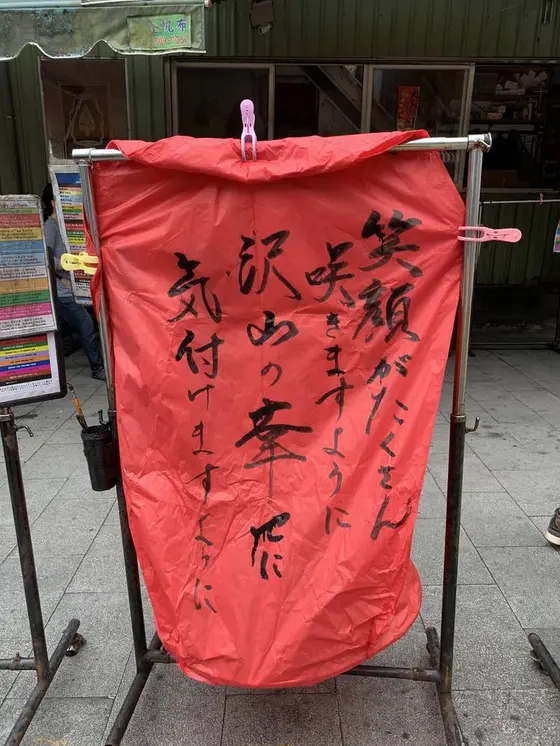 笑顔がたくさん
咲きますように
沢山の幸せに
気付けますように
帆布